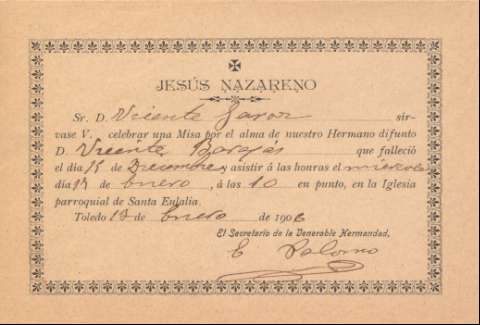 JESÚS NAZARENO
Sr. D. Vicente sír-
vase V. celebrar una Misa por el alma de nuestro Hermano difunto
D. Vicente Barajas que falleció
el día 15 de Diciembre y asistir á las honras el miércoles
día de Enero, á las 10 en punto, en la Iglesia
parroquial de Santa Eulalia.
Toledo de Enero de 1906
El Secretario de la Venerable Hermandad,
E Palomo